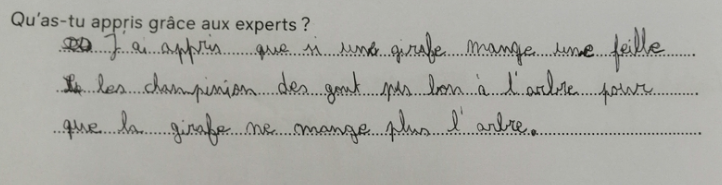 Qu'as-tu appris grâce aux experts ?
J'ai appris que si une girafe mange une feille
les champinion des gout pas bon à l'arbre pour
que la girafe ne mange plus l'arbre.